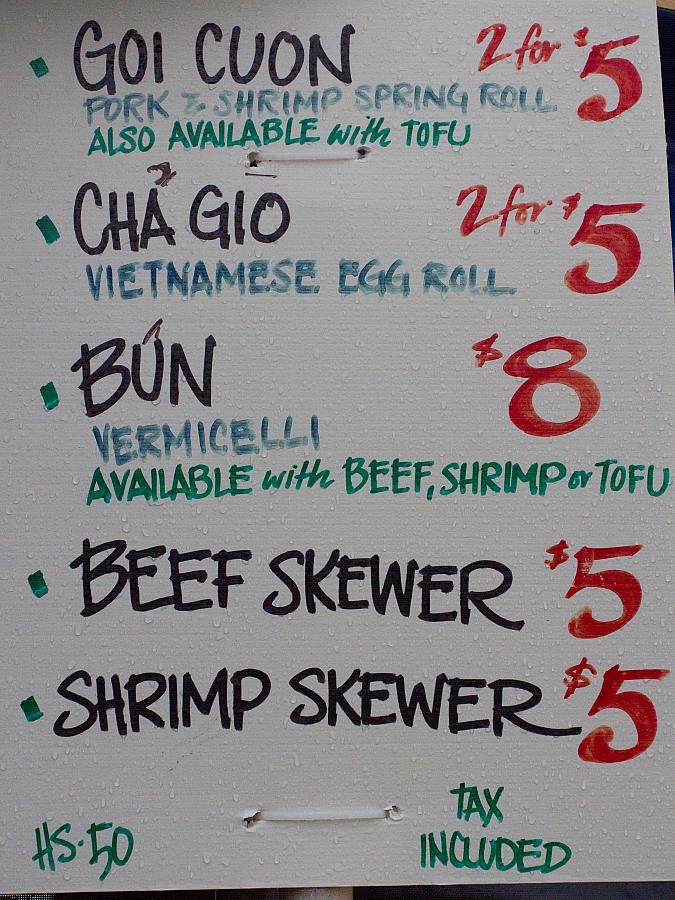 GOI CUON 2 for $5
PORK & SHRIMP SPRING ROLL
ALSO AVAILABLE with TOFU
CHẢ GIO 2 for $5
VIETNAMESE EGG ROLL
BÚN $8
VERMICELLI
AVAILABLE with BEEF, SHRIMP or TOFU
BEEF SKEWER $5
SHRIMP SKEWER $5
TAX
INCLUDED
HS-50